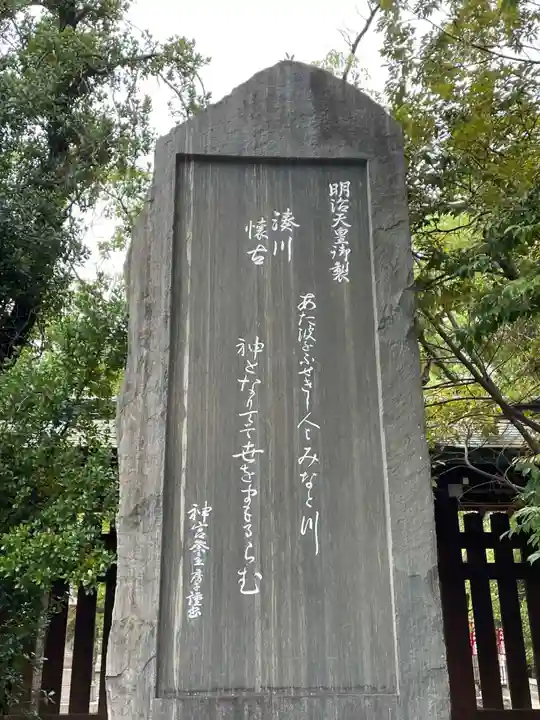 明治天皇御製
湊川
懐古
あた波をふせきし人はみなと川
神となりてそ世をまもるらむ
神宮祭主房子謹書